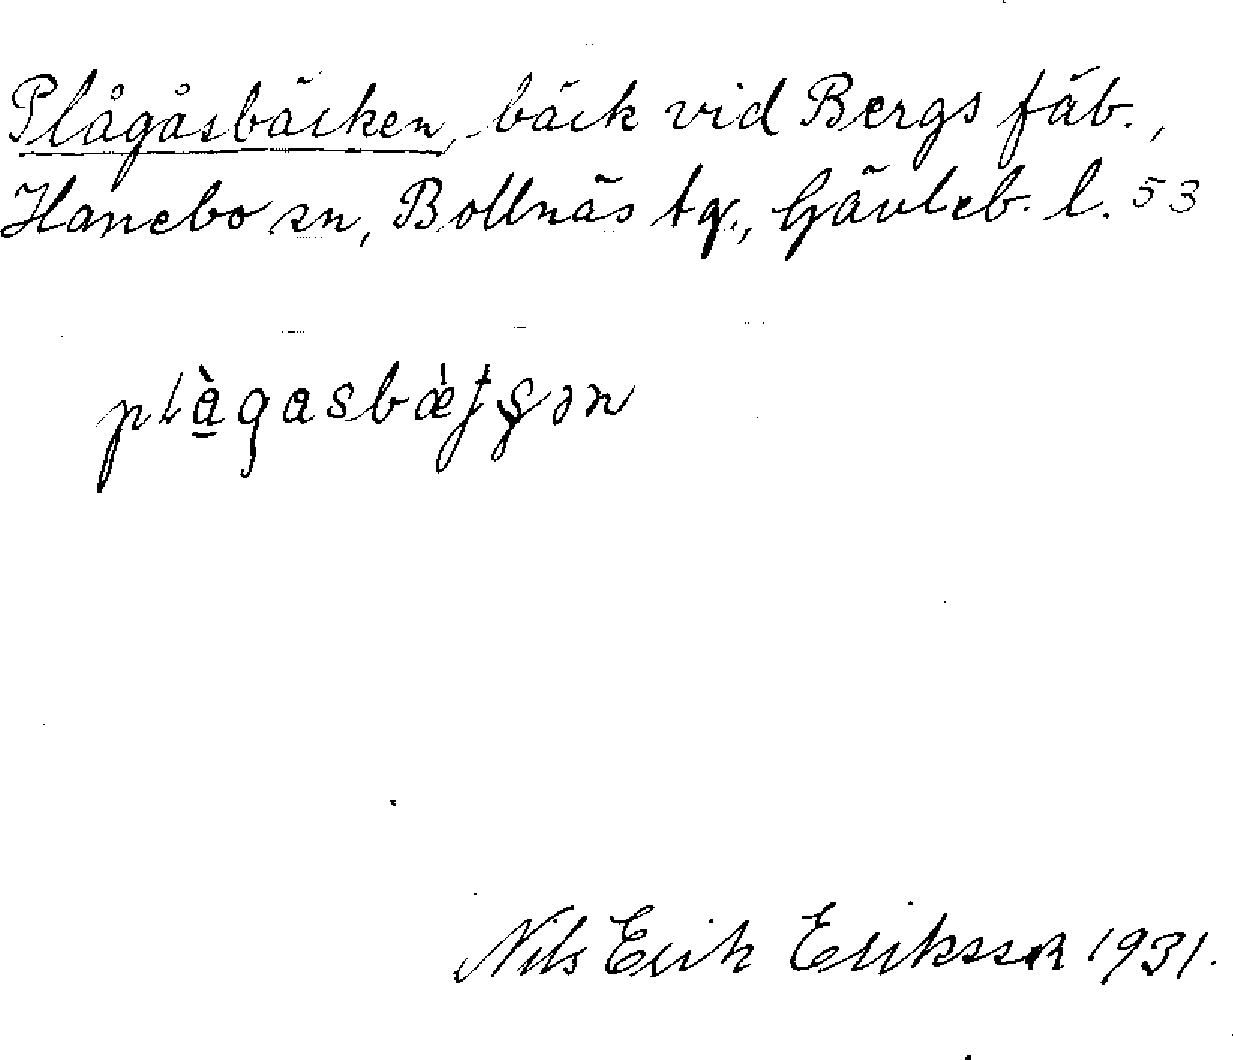 Plågåsbäcken, bäck vid Bergs fäb.,
Hanebo sn, Bollnäs tg., Gävleb. l. 53
Nils Erik Eriksson 1931.